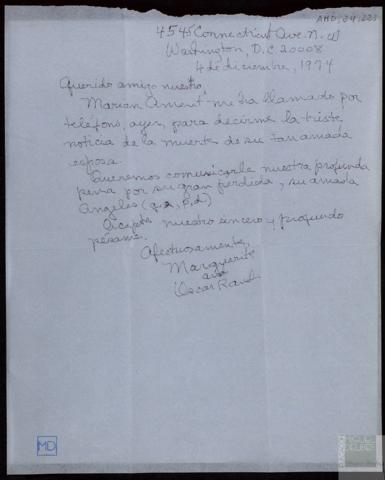 AMD,94,223
4545 Connecticut Ave. N.W
Washington, D.C. 20008
4 de diciembre, 1974
Querido amigo nuestro,
Marion Ament me ha llamado por
teléfono, ayer, para decirme la triste
noticia de la muerte de su tan amada
esposa.
Queremos comunicarle nuestra profunda
pena por su gran perdida, su amada
Angeles (q.e.p.d)
Acepte nuestro sincero y profundo
pésame.
Afectuosamente,
Marguerite
and
Oscar
MD
FUNDACIÓN
MIGUEL
DELIBES